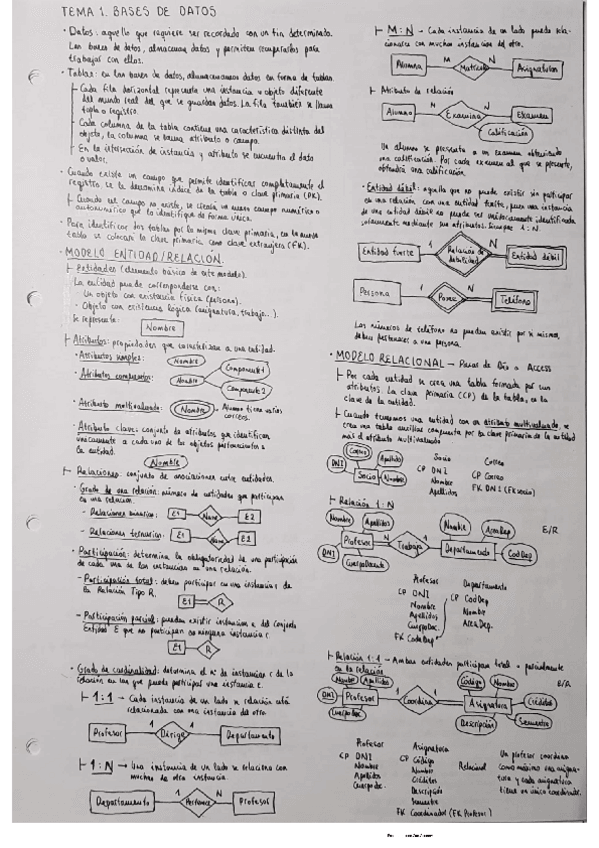 TEMA 1. BASES DE DATOS
· Datos: aquello que requiere ser recordado con un fin determinado.
Las bases de datos, almacenan datos y permiten recuperarlos para
trabajar con ellos.
· Tablas: en las bases de datos, almacenamos datos en forma de tablas
Cada fila horizontal representa una instancia u objeto diferente
del mundo real del que se guardan datos. La fila también se llama
tupla o registro.
Cada columna de la tabla contiene una característica distinta del
objeto, la columna se llama atributo o campo.
En la intersección de instancia y atributo se encuentra el dato
o valor.
· Cuando existe un campo que permite identificar completamente el
registro se le denomina índice de la tabla o clave primaria (PK).
Cuando el campo no existe, se crea un nuevo campo numérico o
autonumérico que lo identifique de forma única.
· Para identificar dos tablas por la misma clave primaria, en la nueva
tabla se colocan la clave primaria como clave extranjera (FK).
· MODELO ENTIDAD/RELACIÓN
Entidades (elemento básico de este modelo).
La entidad puede corresponderse con:
· Un objeto con existencia física (persona).
· Objeto con existencia lógica (asignatura, trabajo..).
Se representa: Nombre
Atributos: propiedades que caracterizan a una entidad.
· Atributos simples: Nombre
· Atributos compuestos: Nombre Componente 1
Componente 2
· Atributo multivaluado: Nombre → Alumno tiene varios
correos.
· Atributo clave: conjunto de atributos que identifican
unívocamente a cada uno de los objetos pertenecientes a
la entidad.
Nombre
Relaciones: conjunto de asociaciones entre entidades.
· Grado de una relación: número de entidades que participan
en una relación.
- Relaciones binarias: E1 Name E2
- Relaciones ternarias: E1 Name E2
· Participación: determina la obligatoriedad de una participación
de cada una de las instancias en una relación.
- Participación total: deben participar en una instancia r de
la Relación Tipo R.
E1 R
- Participación parcial: pueden existir instancias e del conjunto
Entidad E que no participan en ninguna instancia r.
E1 R
· Grado de cardinalidad: determina el nº de instancias r de la
relación en las que puede participar una instancia e.
1:1 → Cada instancia de un lado de relación está
relacionada con una instancia del otro.
Profesor 1 Dirige 1 Departamento
1:N → Una instancia de un lado se relaciona con
muchas de otra instancia.
Departamento 1 Pertenece N Profesor
M:N → Cada instancia de un lado puede rela-
cionarse con muchas instancias del otro.
Alumno M Matrícula N Asignaturas
Atributo de relación
Alumno 1 Examina N Examen
Calificación
Un alumno se presenta a un examen obteniendo
una calificación. Por cada examen al que se presente,
obtendrá una calificación.
· Entidad débil: aquella que no puede existir sin participar
en una relación con una entidad fuerte, pues una instancia
de una entidad débil no puede ser unívocamente identificada
únicamente mediante sus atributos. Siempre 1:N.
Entidad fuerte 1 Relación de debilidad N Entidad débil
Persona 1 Posee N Teléfono
Los números de teléfono no pueden existir por sí mismos,
deben pertenecer a una persona.
· MODELO RELACIONAL → Paso de Dia a Access
Por cada entidad se crea una tabla formada por sus
atributos. La clave primaria (CP) de la tabla, es la
clave de la entidad.
Cuando tenemos una entidad con un atributo multivaluado, se
crea una tabla auxiliar compuesta por la clave primaria de la entidad
más el atributo multivaluado
Correo Apellidos
DNI Socio Nombre
Socio
CP DNI
Nombre
Apellidos
Correo
CP Correo
FK DNI (FK socio)
Relación 1:N
E/R
Nombre Apellidos Nombre AreaDep
DNI Profesor N Trabaja 1 Departamento CodDep
CuerpoDocente
Profesor
CP DNI
Nombre
Apellidos
CuerpoDoc
FK CodeDep
Departamento
CP CodDep
Nombre
AreaDep.
Relación 1:1 → Ambas entidades participan total o parcialmente
en la relación
E/R
Nombre Apellidos Código Nombre
DNI Profesor 1 Coordina 1 Asignatura Créditos
CuerpoDoc Descripción Semestre
Profesor
CP DNI
Nombre
Apellidos
CuerpoDoc.
Asignatura
CP Código
Nombre
Créditos
Descripción
Semestre
FK Coordinador (FK Profesor)
Relacional
Un profesor coordina
como máximo una asigna-
tura y cada asignatura
tiene un único coordinador.